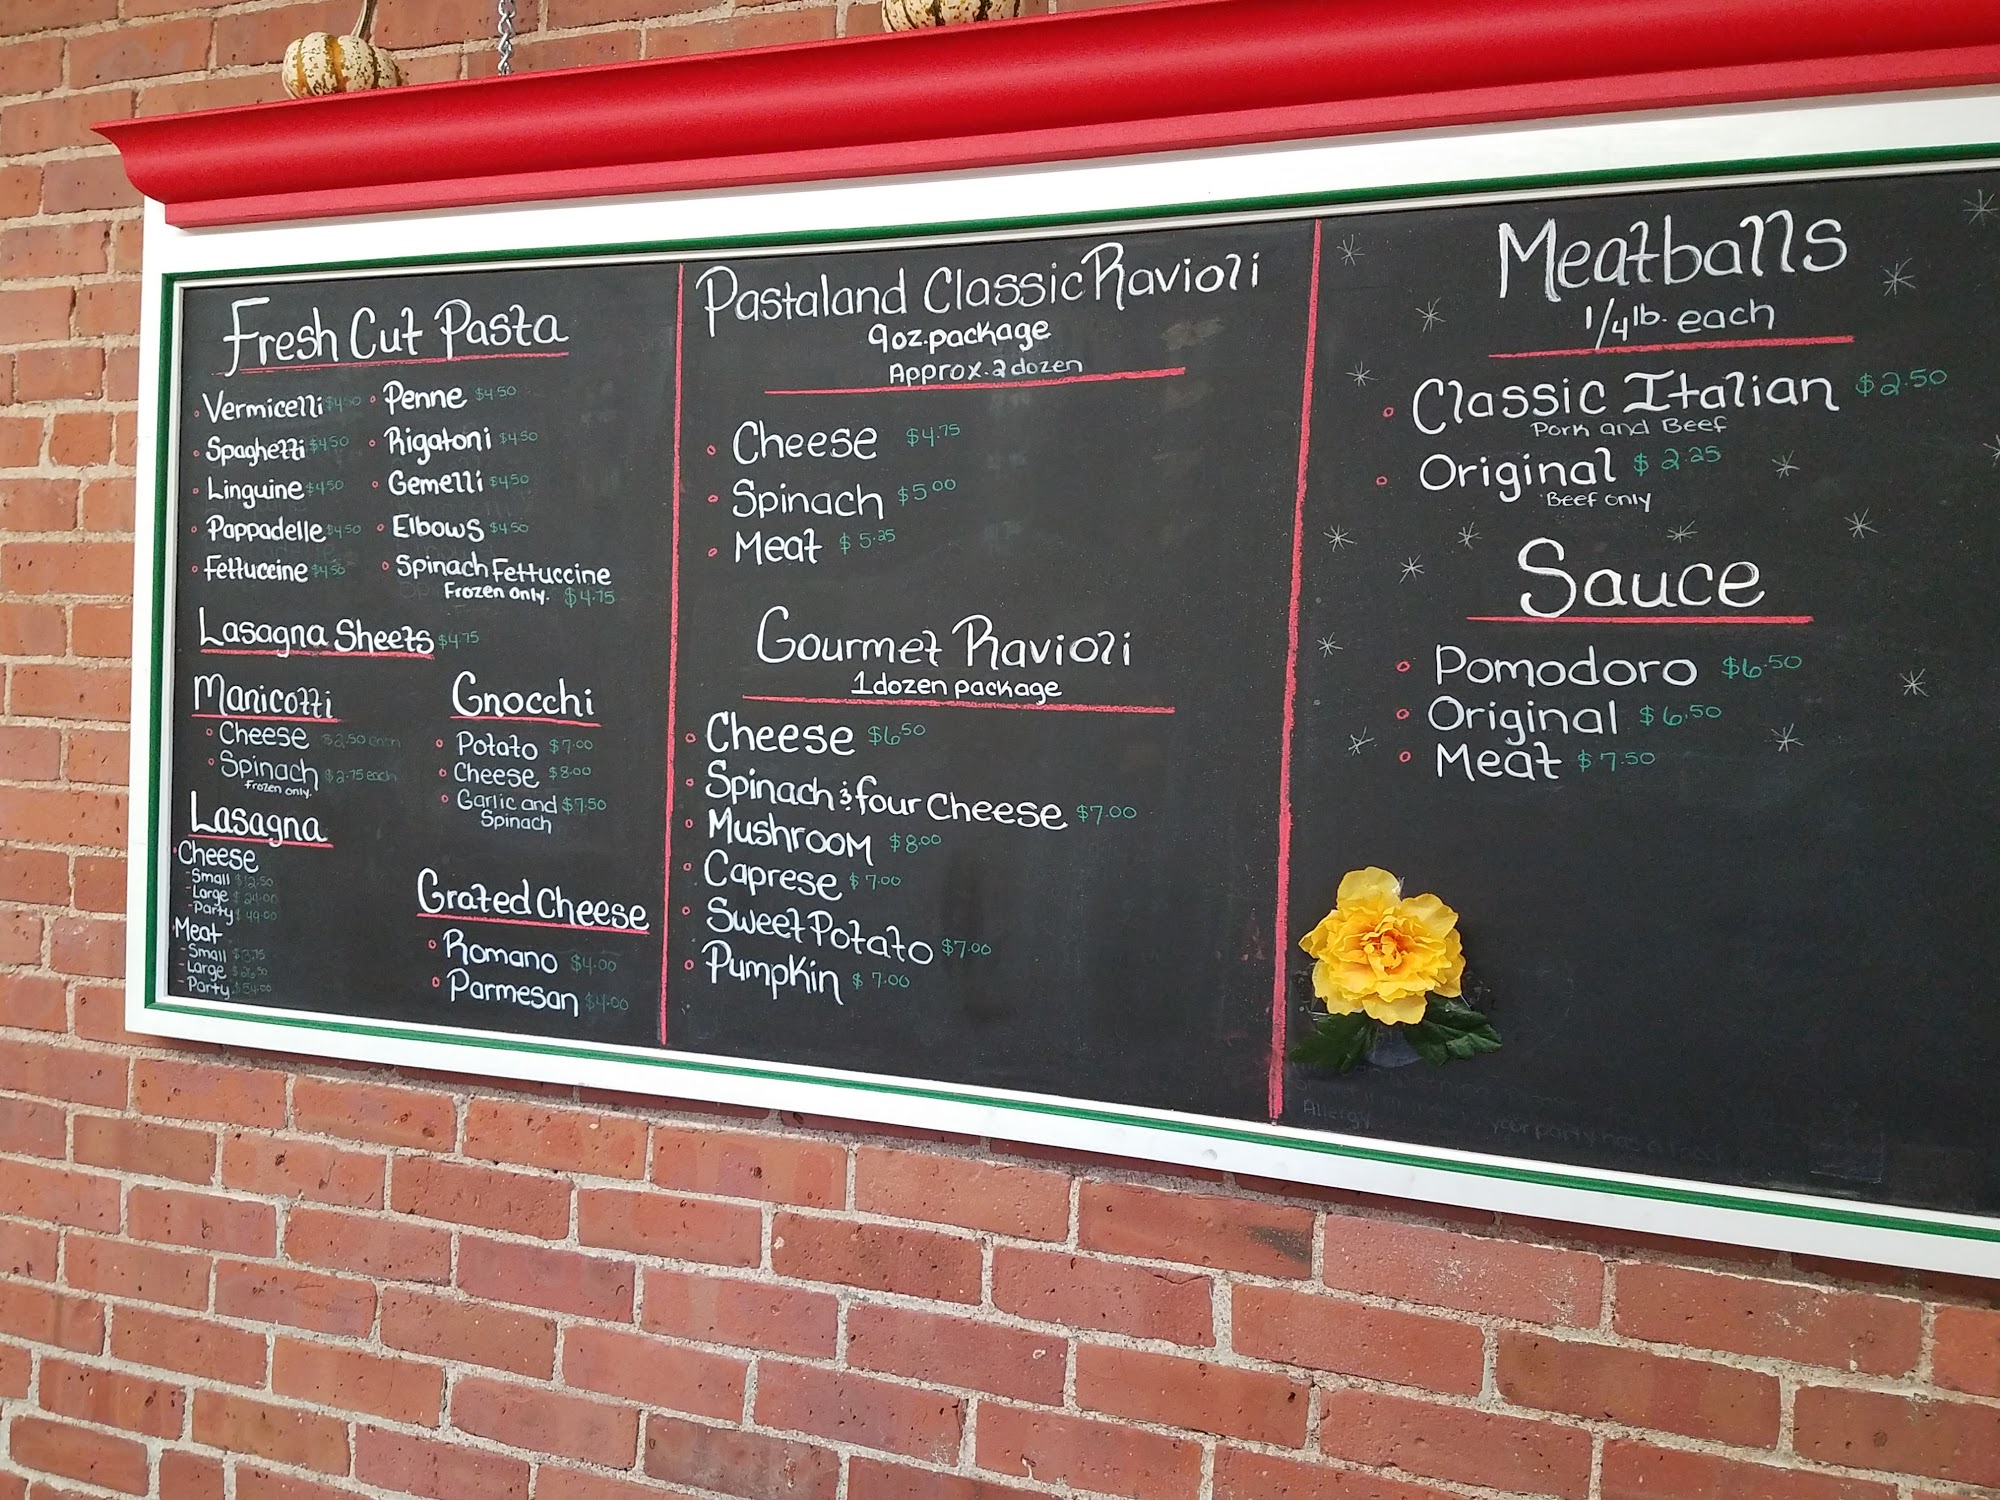 Fresh Cut Pasta
Vermicelli $4.50
Spaghetti $4.50
Linguine $4.50
Pappadelle $4.50
Fettuccine $4.50
Penne $4.50
Rigatoni $4.50
Gemelli $4.50
Elbows $4.50
Spinach Fettuccine
Frozen Only. $4.75
Lasagna Sheets $4.75
Manicotti
Cheese $2.50 each
Spinach $2.75 each
Frozen only.
Lasagna
Cheese
-Small $12.50
-Large $24.00
-Party $49.00
Meat
-Small
-Large $26.50
-Party $54.00
Gnocchi
Potato $7.00
Cheese $8.00
Garlic and $7.50
Spinach
Grated Cheese
Romano $4.00
Parmesan $4.00
Pastaland Classic Ravioli
9oz. package
Approx. 2 dozen
Cheese $4.75
Spinach $5.00
Meat $5.25
Gourmet Ravioli
1 dozen package
Cheese $6.50
Spinach & four Cheese $7.00
Mushroom $8.00
Caprese $7.00
Sweet Potato $7.00
Pumpkin $7.00
Meatballs
1/4 lb. each
Classic Italian $2.50
Pork and Beef
Original $2.25
Beef only
Sauce
Pomodoro $6.50
Original $6.50
Meat $7.50
your party has a
Allergy